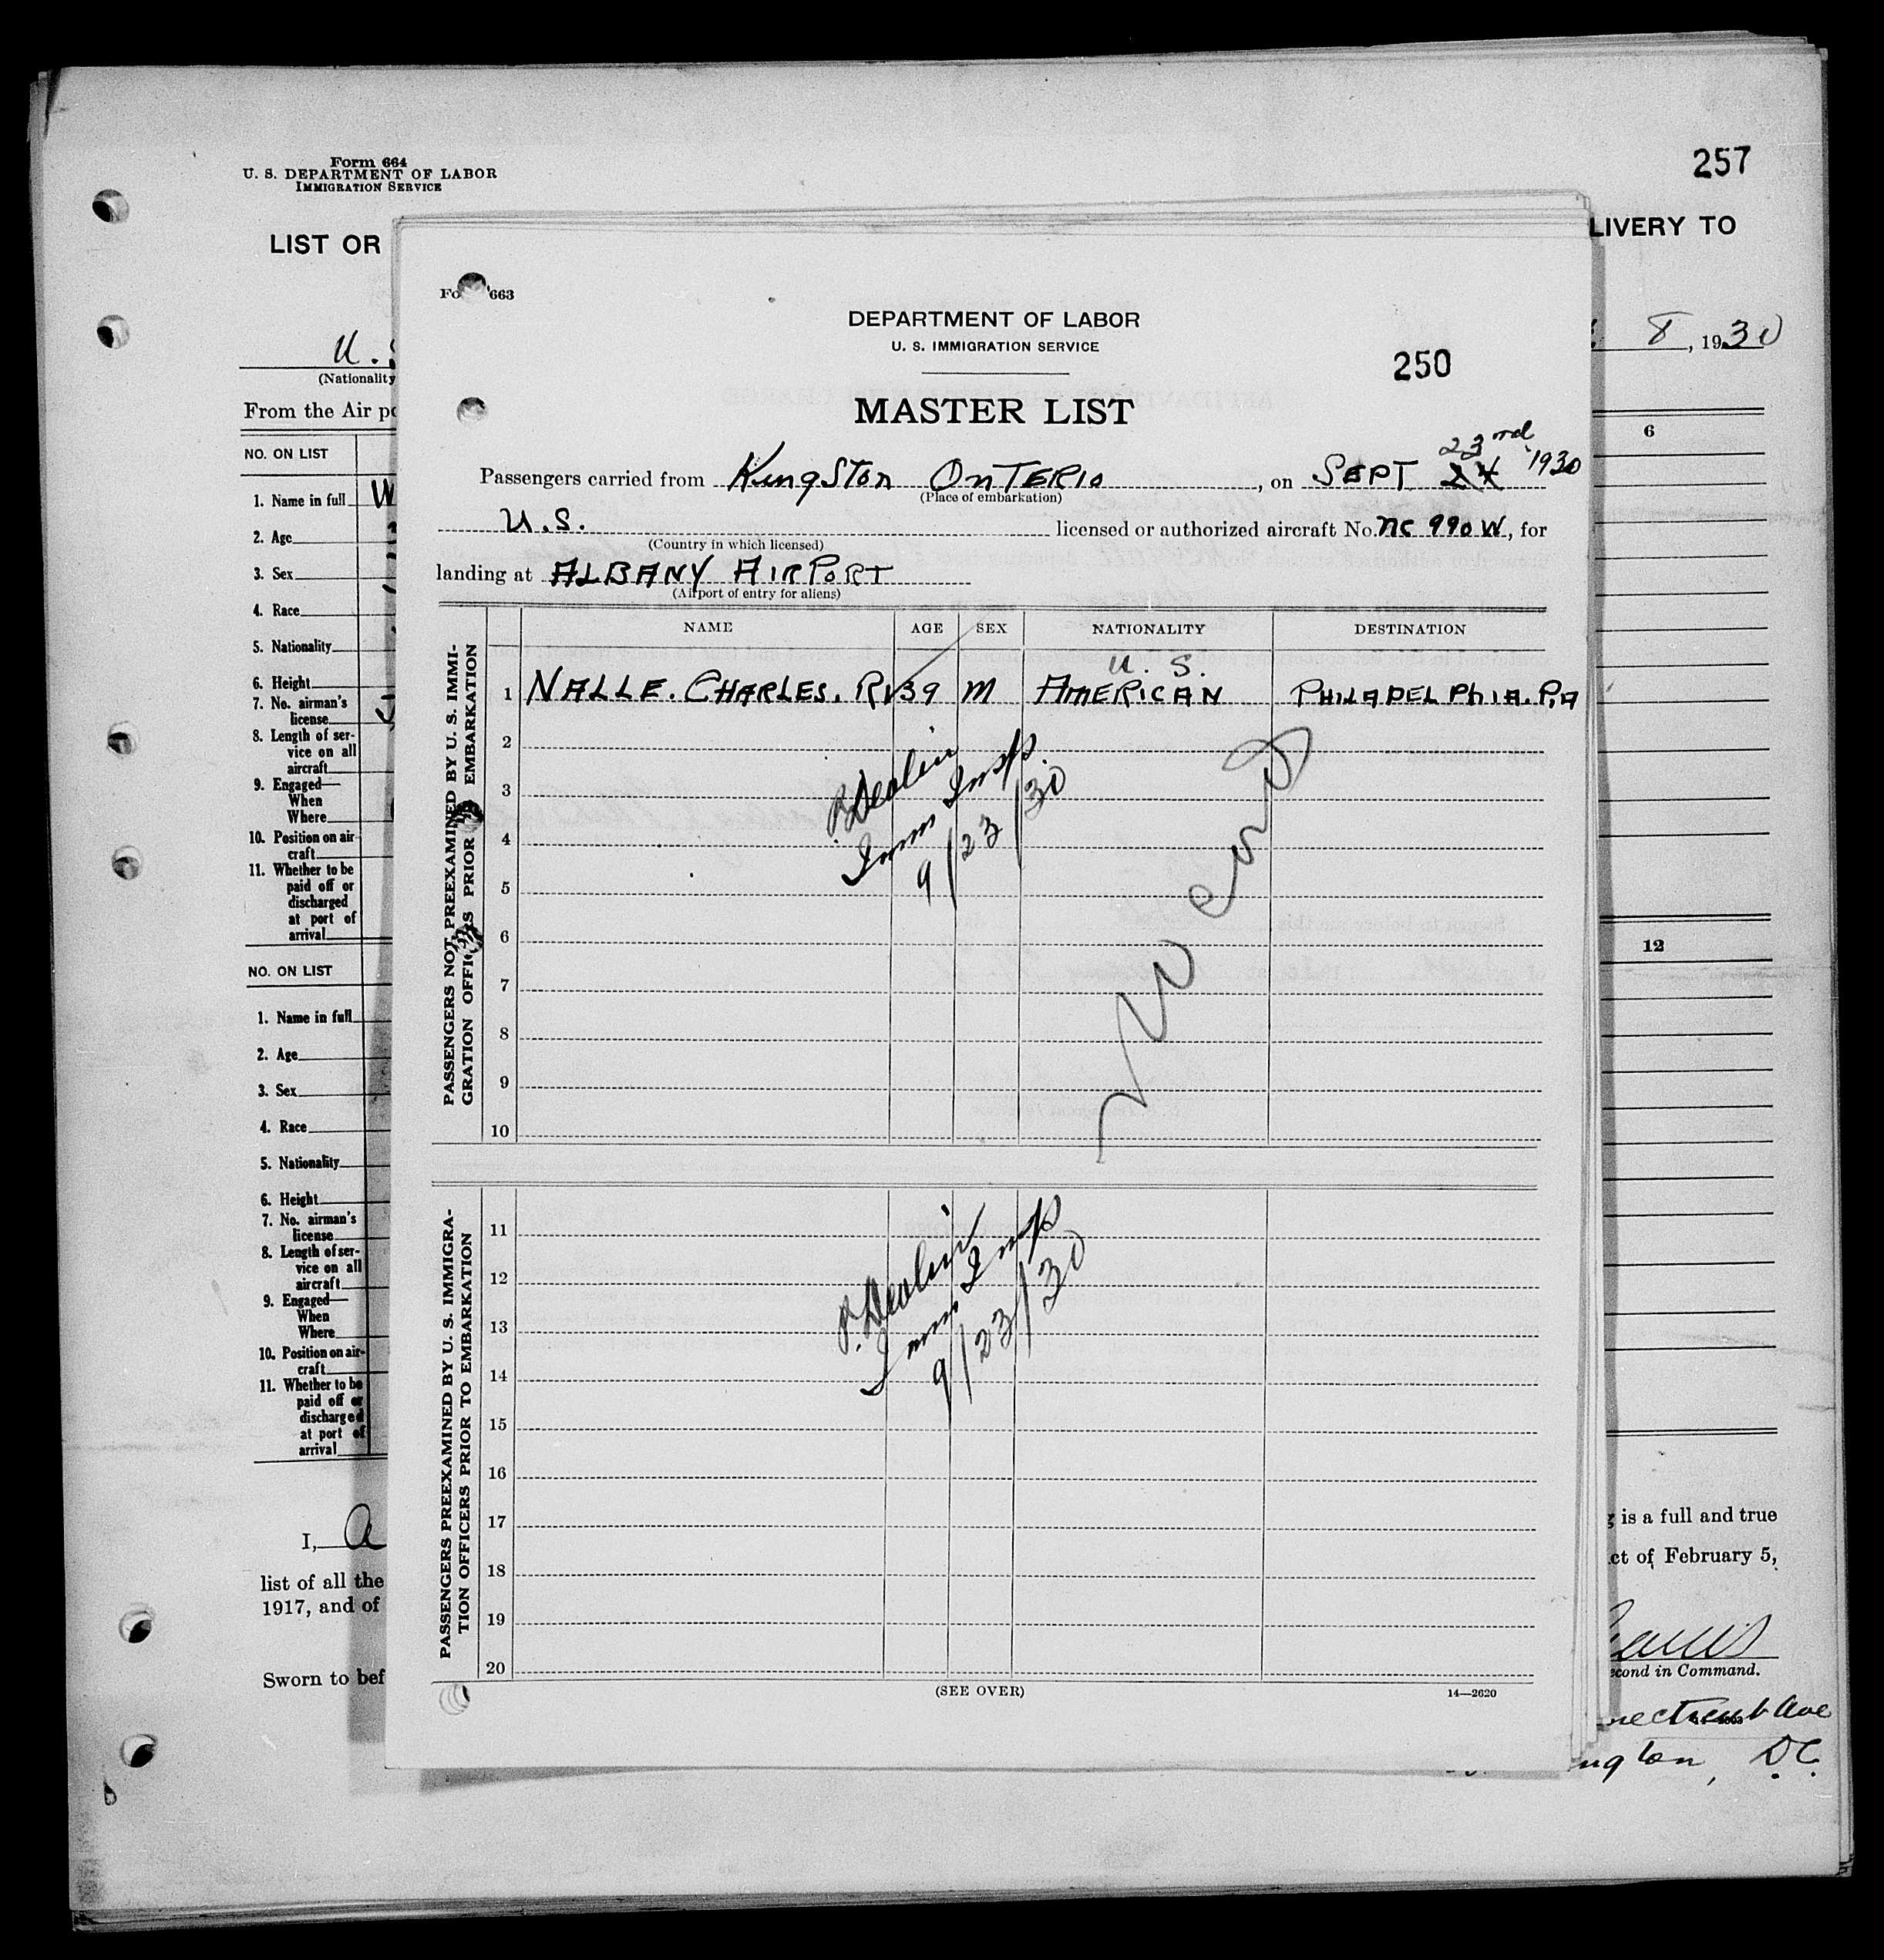 Form 664
U. S. DEPARTMENT OF LABOR
IMMIGRATION SERVICE
257
LIST OR
LIVERY TO
U. S
8, 1930
(Nationality
From the Air po
NO. ON LIST
6
1. Name in full W
2. Age
3. Sex
4. Race
5. Nationality
6. Height
7. No. airman's
license
8. Length of ser-
vice on all
aircraft
9. Engaged—
When
Where
10. Position on air-
craft
11. Whether to be
paid off or
discharged
at port of
arrival
NO. ON LIST
12
1. Name in full
2. Age
3. Sex
4. Race
5. Nationality
6. Height
7. No. airman's
license
8. Length of ser-
vice on all
aircraft
9. Engaged—
When
Where
10. Position on air-
craft
11. Whether to be
paid off or
discharged
at port of
arrival
I, A
is a full and true
list of all the
ct of February 5,
1917, and of
Sworn to bef
econd in Command.
necticut Ave
ngton, D.C.
Fo 663
DEPARTMENT OF LABOR
U. S. IMMIGRATION SERVICE
250
MASTER LIST
23rd
Passengers carried from KingSton OnTERIO, on SEPT 24 1930
(Place of embarkation)
U.S. licensed or authorized aircraft No. NC 990 W, for
(Country in which licensed)
landing at ALBANY AIRPORT
(Airport of entry for aliens)
PASSENGERS NOT PREEXAMINED BY U. S. IMMI-
GRATION OFFICERS PRIOR EMBARKATION
NAME AGE SEX NATIONALITY DESTINATION
U. S.
1 NALLE. CHARLES. R 39 M AMERICAN PHILADELPHIA. PA
2
3
4
5
6
7
8
9
10
P. Deolin
Imm Insp.
9/23/30
PASSENGERS PREEXAMINED BY U. S. IMMIGRA-
TION OFFICERS PRIOR TO EMBARKATION
11
12
13
14
15
16
17
18
19
20
P. Deolin
Imm Insp
9/23/30
(SEE OVER)
14—2620